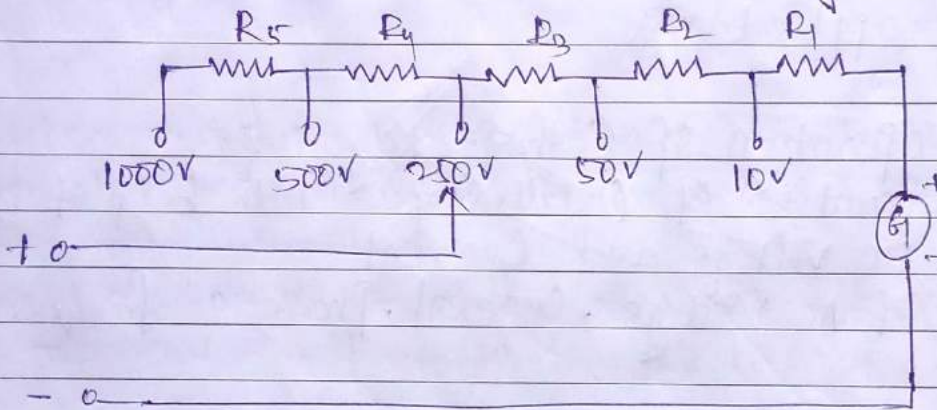 R5 R4 R3 R2 R1
1000V 500V 250V 50V 10V
+
+
G
-
-